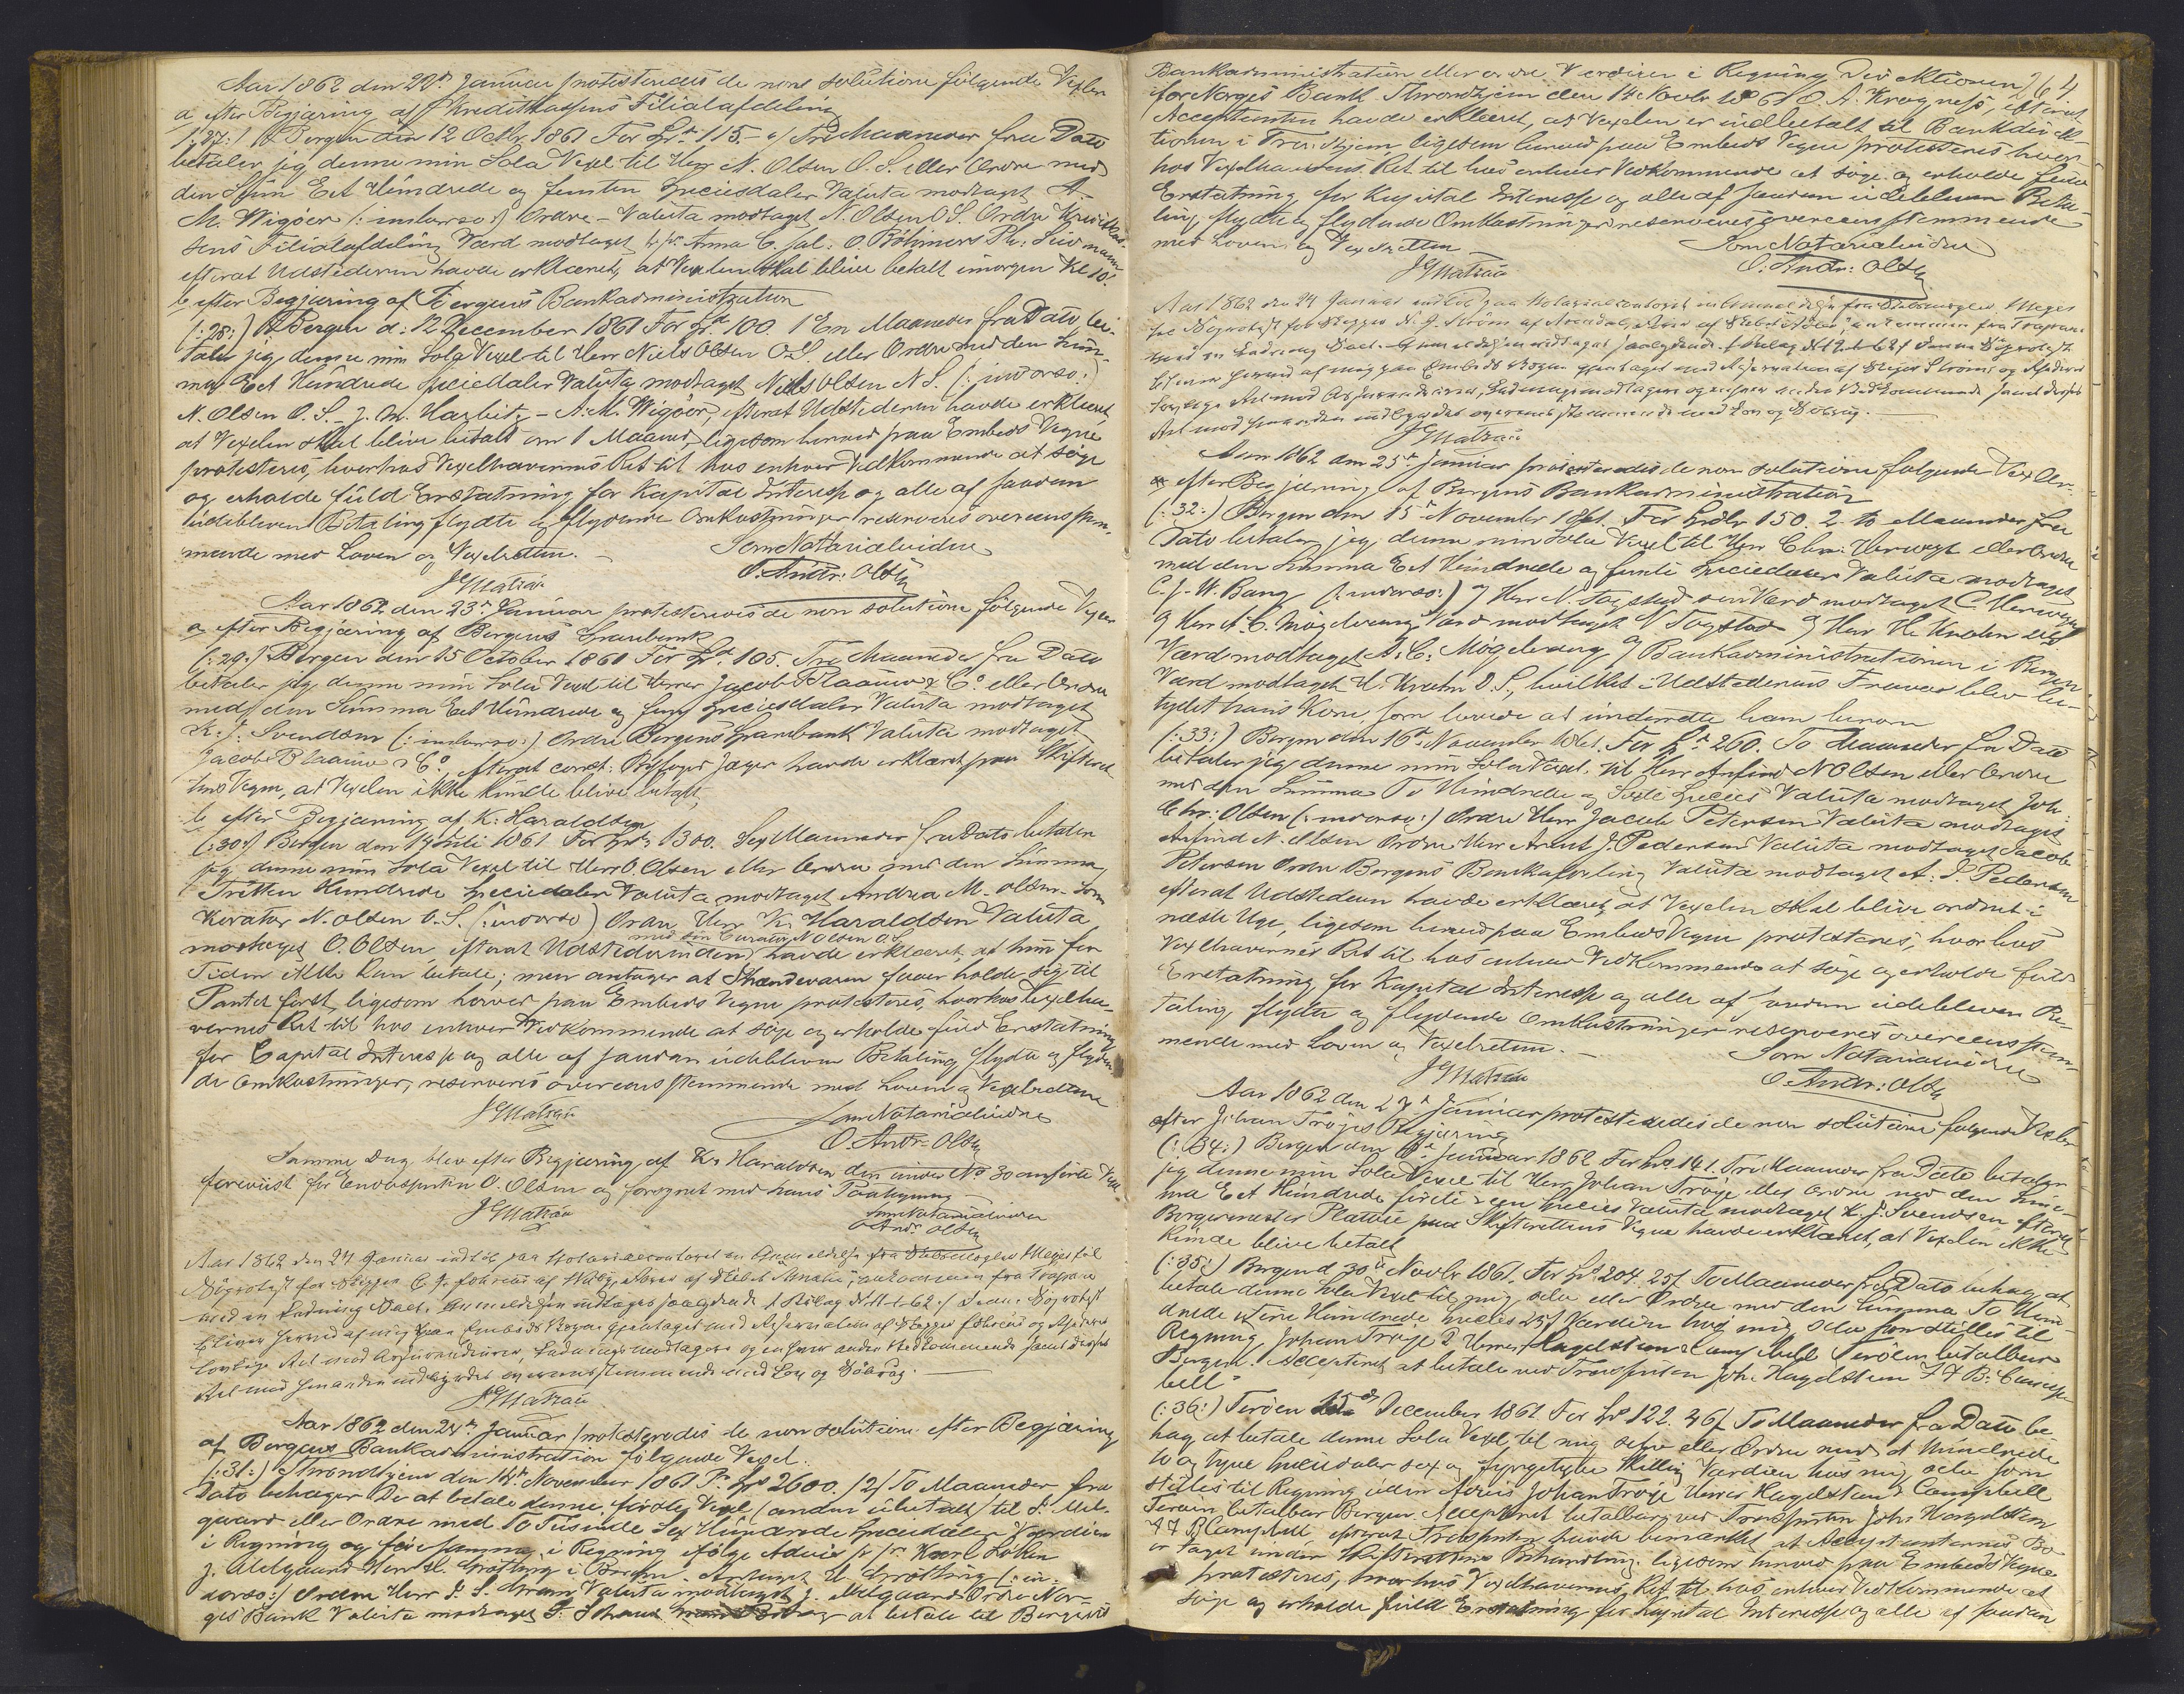 Aar 1862 den 22de Januar protesteredes de non solutione følgende Vexler
a, efter Begjæring af Kreditkassens Filialafdeling
(:27:) Bergen den 12 Octbr 1861 For Spd 115 - Tre Maaneder fra Dato
betaler jeg denne min Sola Vexel til Herr N. Olsen O. S. eller Ordre med
den Sum Eet Hundrede og femten Speciesdaler Valuta modtaget A.
M. Wigøer (: indorso:) Ordre - Valuta modtaget N. Olsen O S. Ordre Kreditkas-
sens Filialafdeling Værd modtaget Anna C. sal: O. Böhmers
efterat Udstederen havde erklæret, at Vexelen skal blive betalt imorgen Kl 10.
b efter Begjæring af Bergens Bankadministration
(:28:) Bergen d: 12 December 1861 For Spd 100. 1 En Maaneder fra Dato be-
taler jeg denne min Sola Vexel til Herr Niels Olsen O. S. eller Ordre med den Sum-
ma Eet Hundrede Speciedaler Valuta modtaget Niels Olsen N S. (: indorso:)
N. Olsen O. S. - J. M. Harbitz - A. M. Wigöer, efterat Udstederen havde erklæret,
at Vexelen skal blive betalt om 1 Maaned, ligesom herved paa Embeds Vegne
protesteres, hvorhos Vexelhaverens Ret til hos enhver Vedkommende at søge
og erholde fuld Erstatning for Kapital Interesse og alle af saadan
udebleven Betaling flydte og flydende Omkostninger reserveres overeensstem-
mende med Loven og Vexelretten.
Som Notarialvidne
JGMatzau O. Andr: Olsen
Aar 1862 den 23de Januar protesteredes de non solutione følgende Vexler
a, efter Begjæring af Bergens Sparebank
(:29:) Bergen den 15 October 1861 For Spd 105. Tre Maaneder fra Dato
betaler jeg denne min Sola Vexel til Herrer Jacob Blaauw & Co eller Ordre
med den Summa Eet Hundrede og fem Speciesdaler Valuta modtaget
K. J. Svendsen (: indorso:) Ordre Bergens Sparebank Valuta modtaget
Jacob Blaauw & Co efterat const: Byfoged Jæger havde erklæret paa Skifteret-
tens Vegne, at Vexelen ikke kunde blive betalt,
b efter Begjæring af K: Haraldsen
(:30:) Bergen den 19 Juli 1861 For Spd 1300. Sex Maaneder fra Dato betaler
jeg denne min Sola Vexel til Herr O. Olsen eller Ordre med den Summa
Tretten Hundrede Speciedaler Valuta modtaget Andrea M. Olsen. Som
Kurator N. Olsen O. S. (: indorso) Ordre Herr K. Haraldsen Valuta
modtaget O. Olsen, efterat Udstederinden med sin Curator N Olsen O. S. havde erklæret, at hun for
Tiden ikke kan betale; men antager at Ihændehaveren faaer holde sig til
Pantet først, ligesom herved paa Embeds Vegne protesteres, hvorhos Vexelha-
verens Ret til hos enhver Vedkommende at søge og erholde fuld Erstatning
for Capital Interesse og alle af saadan udebleven Betaling flydte og flyden-
de Omkostninger, reserveres overeensstemmende med Loven og Vexelretten
JGMatzau Som Notarialvidne
O. Andr: Olsen
Samme Dag blev efter Begjæring af K. Haraldsen den under No 30 anførte Vexel
foreviist for Endossenten O. Olsen og forsynet med hans Paategning
JGMatzau Som Notarialvidne
O Andr Olsen
Aar 1862 den 24 Januar indløb paa Notarialcontoret en Anmeldelse fra Skibsmægler Meyer til
Søprotest for Skipper C. J. Johnsen af Skibet Amalia, ankommen fra Trapani
med en Ladning Salt. Anmeldelsen indtages saalydende (Bilag No 11-1-62) Denne Søprotest
bliver herved af mig paa Embeds Vegne gjentaget med Reservation af Skipper Johnsens og Rederies
lovlige Ret mod Assuradeurer, Ladningsmodtagere og enhver anden Vedkommende samt disses
Ret mod hinanden indbyrdes overensstemmende med Lov og Søbrug.
JGMatzau
Aar 1862 den 24de Januar protesteredes de non solutione efter Begjæring
af Bergens Bankadministration følgende Vexel.
(:31:) Throndhjem den 14de November 1861 Pr Spd 2600. /2/ To Maaneder fra
Dato behager De at betale denne første Vexel (anden ubetalt) til J. Mel-
gaard eller Ordre med To Tusinde Sex Hundrede Speciedaler Værdien
i Regning og føie samme i Regning ifølge Advis Karl Løken
J. Melgaard Herr H. Grøtting i Bergen. Antaget H Grøtting (: in-
dorso:) Ordre Herr Valuta modtaget J. Melgaard Ordre Nor-
ges Bank Valuta modtaget at betale til Bergens
Bankadministration eller ordre Værdien i Regning Direktionen 264
for Norges Bank Throndhjem den 14 Novbr 1861 O. A. Krognæss, efterat
Acceptanten havde erklæret, at Vexelen er indbetalt til Bankdirek-
tionen i Trondhjem ligesom herved paa Embeds Vegne protesteres hvor-
hos Vexelhaverens Ret til hos enhver Vedkommende at søge og erholde fuld
Erstatning for Kapital Interesse og alle af saadan udebleven Beta-
ling flydte og flydende Omkostninger reserveres overeensstemmende
med Loven og Vexelretten
Som Notarialvidne
JGMatzau O. Andr: Olsen
Aar 1862 den 24 Januar indløb paa Notarialcontoret en Anmeldelse fra Skibsmægler Meyer
til Søprotest for Skipper N. J. Strøm af Arendal, fører af Skibet, ankommen fra Trapani
med en Ladning Salt. Anmeldelsen indtages saalydende (Bilag No 12-1-62) Denne Søprotest
bliver herved af mig paa Embeds Vegne gjentaget med Reservation af Skipper Strøms og Rederies
lovlige Ret mod Assuradeurer, Ladningsmodtagere og enhver anden Vedkommende samt disses
Ret mod hinanden indbyrdes overensstemmende med Lov og Søbrug.
JGMatzau
Aar 1862 den 25de Januar protesteredes de non solutione følgende Vexler
efter Begjæring af Bergens Bankadministration
(:32:) Bergen den 15de November 1861. For Spdlr 150. 2. to Maaneder fra
Dato betaler jeg denne min Sola Vexel til Herr Chr. Herwegh eller Ordre
med den Summa Eet Hundrede og femti Speciedaler Valuta modtaget
C. J. W. Bang (: indorso:) Herr N. Togstad Værd modtaget C. Herwegh
Herr A. C. Møgelvang Værd modtaget N Togstad Herr H. Krohn
Værd modtaget A. C. Møgelvang Bankadministrationen i Bergen
Værd modtaget H. Krohn D. S., hvilket i Udstederens Fravær blev be-
tydet hans Kone, som lovede at underrette ham herom
(:33:) Bergen den 16de November 1861. For Spd 260. To Maaneder fra Dato
betaler jeg denne min Sola Vexel til Herr Anfind N Olsen eller Ordre
med den Summa To Hundrede og Sexti Species Valuta modtaget Joh.
Chr. Olsen (: indorso:) Ordre Herr Jacob Petersen Valuta modtaget
Anfind N. Olsen Ordre Herr Arent J. Pedersen Valuta modtaget Jacob
Petersen Ordre Bergens Bankafdeling Valuta modtaget A: J. Pedersen
efterat Udstederen havde erklæret, at Vexelen skal blive ordnet i
næste Uge, ligesom herved paa Embeds Vegne protesteres, hvorhos
Vexelhaverens Ret til hos enhver Vedkommende at søge og erholde fuld
Erstatning for Kapital Interesse og alle af saadan udebleven Be-
taling flydte og flydende Omkostninger reserveres overeensstem-
mende med Loven og Vexelretten.
Som Notarialvidne
JGMatzau O. Andr: Olsen
Aar 1862 den 27de Januar protesteredes de non solutione følgende Vexler
efter Johan Trøjes Begjæring
(:34:) Bergen den Januar 1862 For Spd 141. Tre Maaneder fra Dato betaler
jeg denne min Sola Vexel til Herr Johan Trøje eller Ordre med den Sum-
ma Eet Hundrede firti og een Species Valuta modtaget K. J. Svendsen efterat
Borgermester Platou paa Skifterettens Vegne havde erklæret, at Vexelen ikke
kunde blive betalt
(:35:) Bergen d 30te Novbr 1861. For Spd 204. 25ß To Maaneder fra Dato behag at
betale denne Sola Vexel til mig selv eller Ordre med den Summa To Hun-
drede fire Species 25ß Værdien hos mig selv som stilles til
Regning Johan Trøje Herrer Hagelsteen & Campbell Terøen betalbar
Bergen. Accepteret at betale ved Trosspesten Joh. Hagelsteen F F B: Camp-
bell
(:36:) Terøen December 1861 For Spd 122. 46ß To Maaneder fra Dato be-
hag at betale denne Sola Vexel til mig selv eller Ordre med et Hundrede
to og tyve Speciedaler sex og fyrgetyve Skilling Værdien hos mig selv som
stilles til Regning uden Advis Johan Trøje Herrer Hagelsteen & Campbell
Terøen betalbar Bergen. Accepteret betalbar ved Joh: Hagelsteen
F F B Campbell efterat havde bemærket at Acceptanternes Bo
er taget under Skifterettens Behandling, ligesom herved paa Embeds Vegne
protesteres, hvorhos Vexelhaverens Ret til hos enhver Vedkommende at
søge og erholde fuld Erstatning for Kapital Interesse og alle af saadan